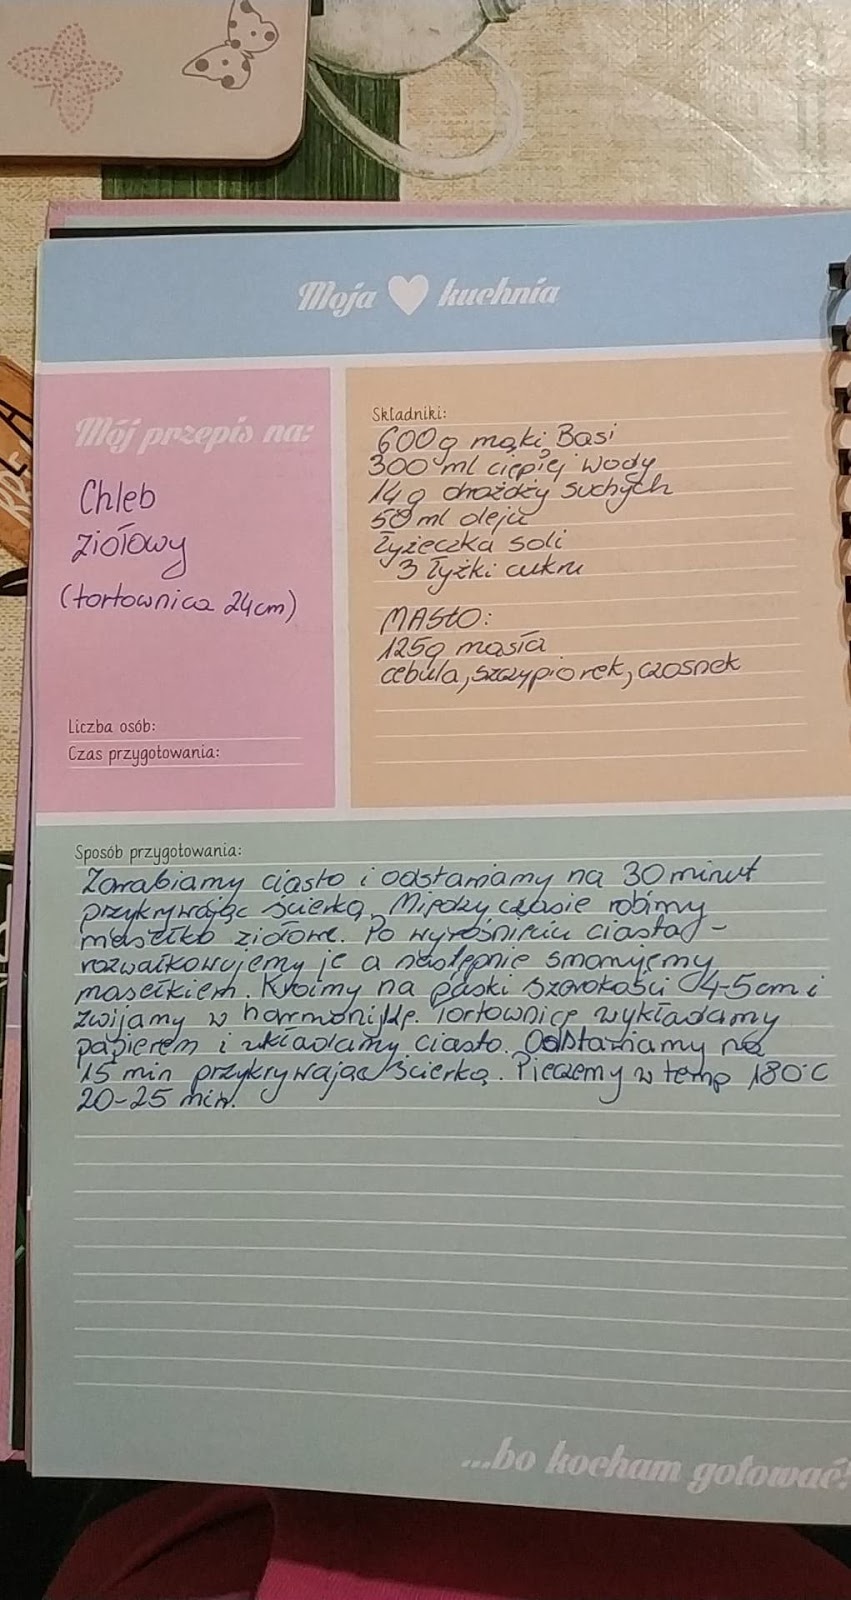 Moja kuchnia
Mój przepis na:
Chleb
ziołowy
(tortownica 24cm)
Liczba osób:
Czas przygotowania:
Składniki:
600g mąki Basi
300 ml ciepłej wody
14g drożdży suchych
50 ml oleju
łyżeczka soli
3 łyżki cukru
MASŁO:
125g masła
cebula, szczypiorek, czosnek
Sposób przygotowania:
Zarabiamy ciasto i odstawiamy na 30 minut
przykrywając ścierką. Między czasie robimy
masełko ziołowe. Po wyrośnięciu ciasta -
rozwałkowujemy je a następnie smarujemy
masełkiem. Kroimy na paski szerokości 4-5cm i
zwijamy w harmonijkę. Tortownicę wykładamy
papierem i układamy ciasto. Odstawiamy na
15 min przykrywając ścierką. Pieczemy w temp 180°C
20-25 min.
...bo kocham gotować!